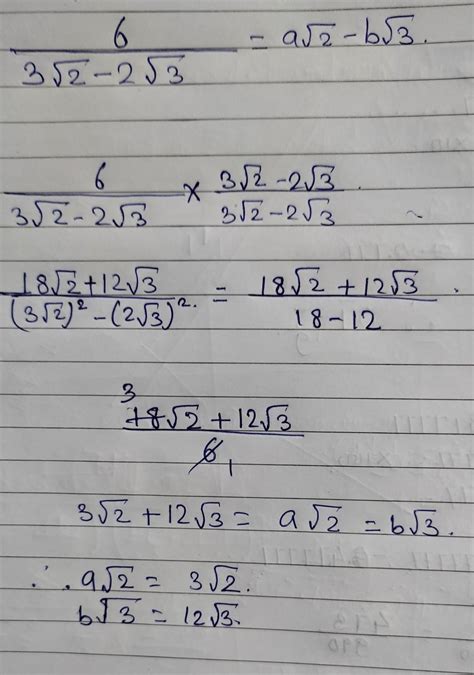 6/(3√2 - 2√3) = a√2 - b√3.
6/(3√2 - 2√3) × (3√2 - 2√3)/(3√2 - 2√3)
(18√2 + 12√3)/((3√2)² - (2√3)².) = (18√2 + 12√3)/(18 - 12) .
3
(18√2 + 12√3)/6 1
3√2 + 12√3 = a√2 = b√3.
∴ a√2 = 3√2.
b√3 = 12√3.